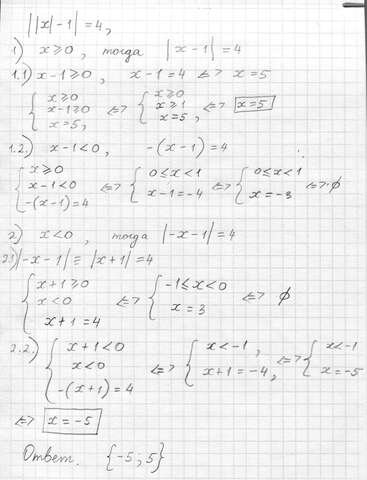 ||x|-1|=4,
1) x⩾0, тогда |x-1|=4
1.1) x-1⩾0, x-1=4 <=> x=5
{ x⩾0 x-1⩾0 x=5, <=> { x⩾0 x⩾1 x=5, <=> x=5
1.2.) x-1<0, -(x-1)=4
{ x⩾0 x-1<0 -(x-1)=4 <=> { 0≤x<1 x-1=-4 <=> { 0≤x<1 x=-3 <=> ∅
2) x<0, тогда |-x-1|=4
2.1) |-x-1| ≡ |x+1|=4
{ x+1⩾0 x<0 x+1=4 <=> { -1≤x<0 x=3 <=> ∅
2.2.) { x+1<0 x<0 -(x+1)=4 <=> { x<-1, x+1=-4, <=> { x<-1 x=-5
<=> x=-5
Ответ. {-5; 5}